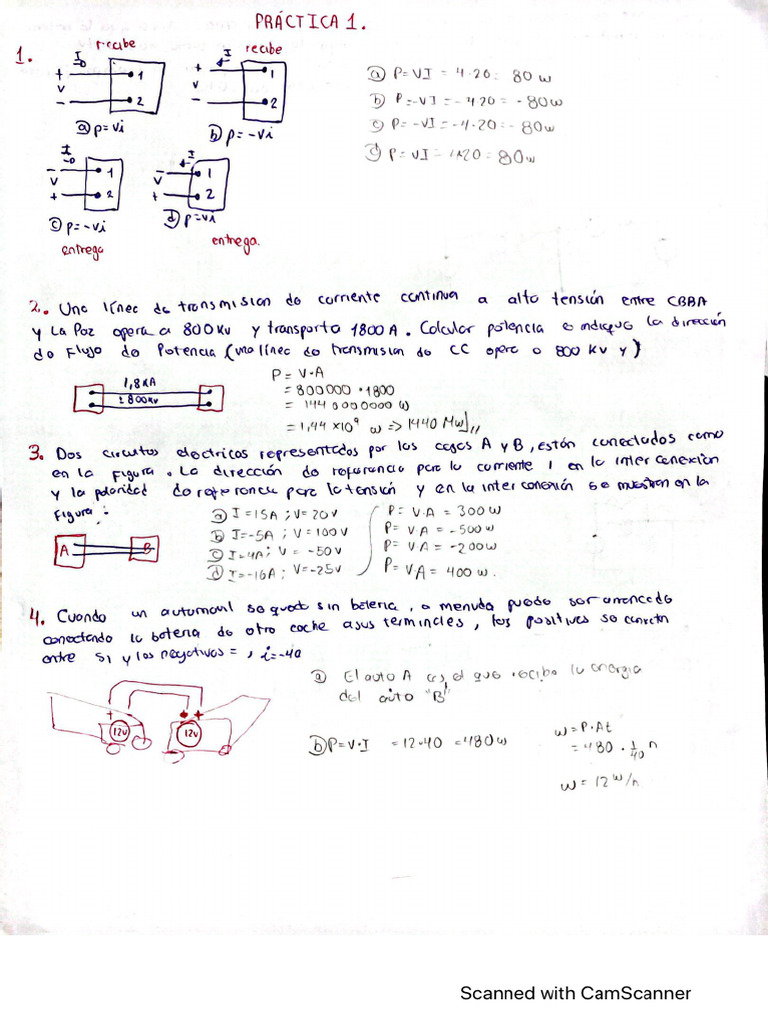 PRÁCTICA 1.
1.
recibe
I
+
V
-
1
2
ⓐ p=vi
recibe
I
+
V
-
1
2
ⓑ p=-vi
ⓐ P=VI = 4·20= 80 w
ⓑ P=-VI=-4·20=-80w
ⓒ P=-VI=-4·20=-80w
ⓓ P=VI=4x20=80w
I
-
V
+
1
2
ⓒ p=-vi
entrega
I
-
V
+
1
2
ⓓ p=vi
entrega.
2. Una línec de transmision de corriente continua a alto tensión entre CBBA
y La Paz opera a 800Kv y transporto 1800 A. Calcular potencia e indique la dirección
do Flujo do Potencia (uno línec do transmision do CC opero o 800 KV y)
1,8KA
±800Kv
P = V·A
= 800000·1800
= 1440000000 w
= 1,44 x10⁹ w => 1440 Mw//
3. Dos circuitos electricos representados por los cajas A y B, están conectados como
en la Figura. La dirección do roferencio para lo corriente 1 en lo interconexion
y la polaridad do roferencia para la tensión y en la interconexión se muestran en la
Figura:
A
B
ⓐ I=15A ; V=20v
ⓑ I=-5A ; V=100v
ⓒ I=4A; V=-50v
ⓓ I=-16A; V=-25v
P= V.A = 300w
P= VA = -500w
P= VA = -200w
P= VA = 400 w.
4. Cuando un automovil se quedo sin bateria, a menudo puedo ser arrancado
conectando lo bateria de otro coche a sus terminales, los positivos se conectn
entre si y los negativos=, i=-40
+
12V
+
12V
ⓐ El auto A es el que reciba la energia
del auto "B"
ⓑ P=V·I = 12·40 = 480w
w=P·At
=480·1/40 n
w = 12 w/n
Scanned with CamScanner